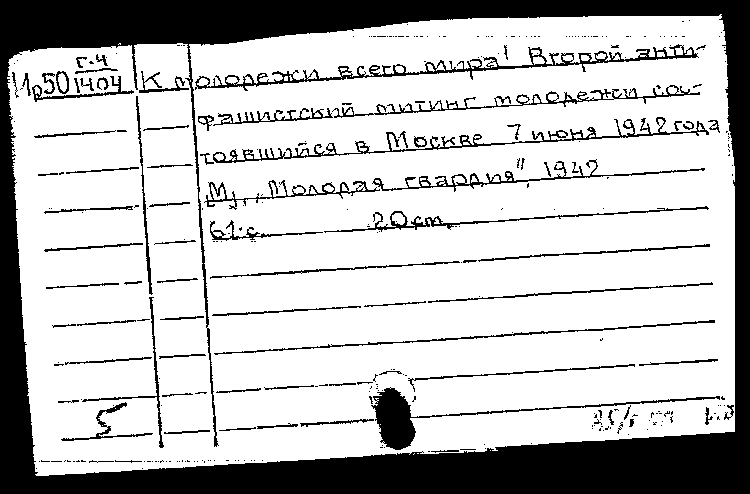 г.ч
Ир50 1404 К молодежи всего мира! Второй анти-
фашистский митинг молодежи, сос-
тоявшийся в Москве 7 июня 1942 года
[М], „Молодая гвардия", 1942
61 с. 20 cm.
5